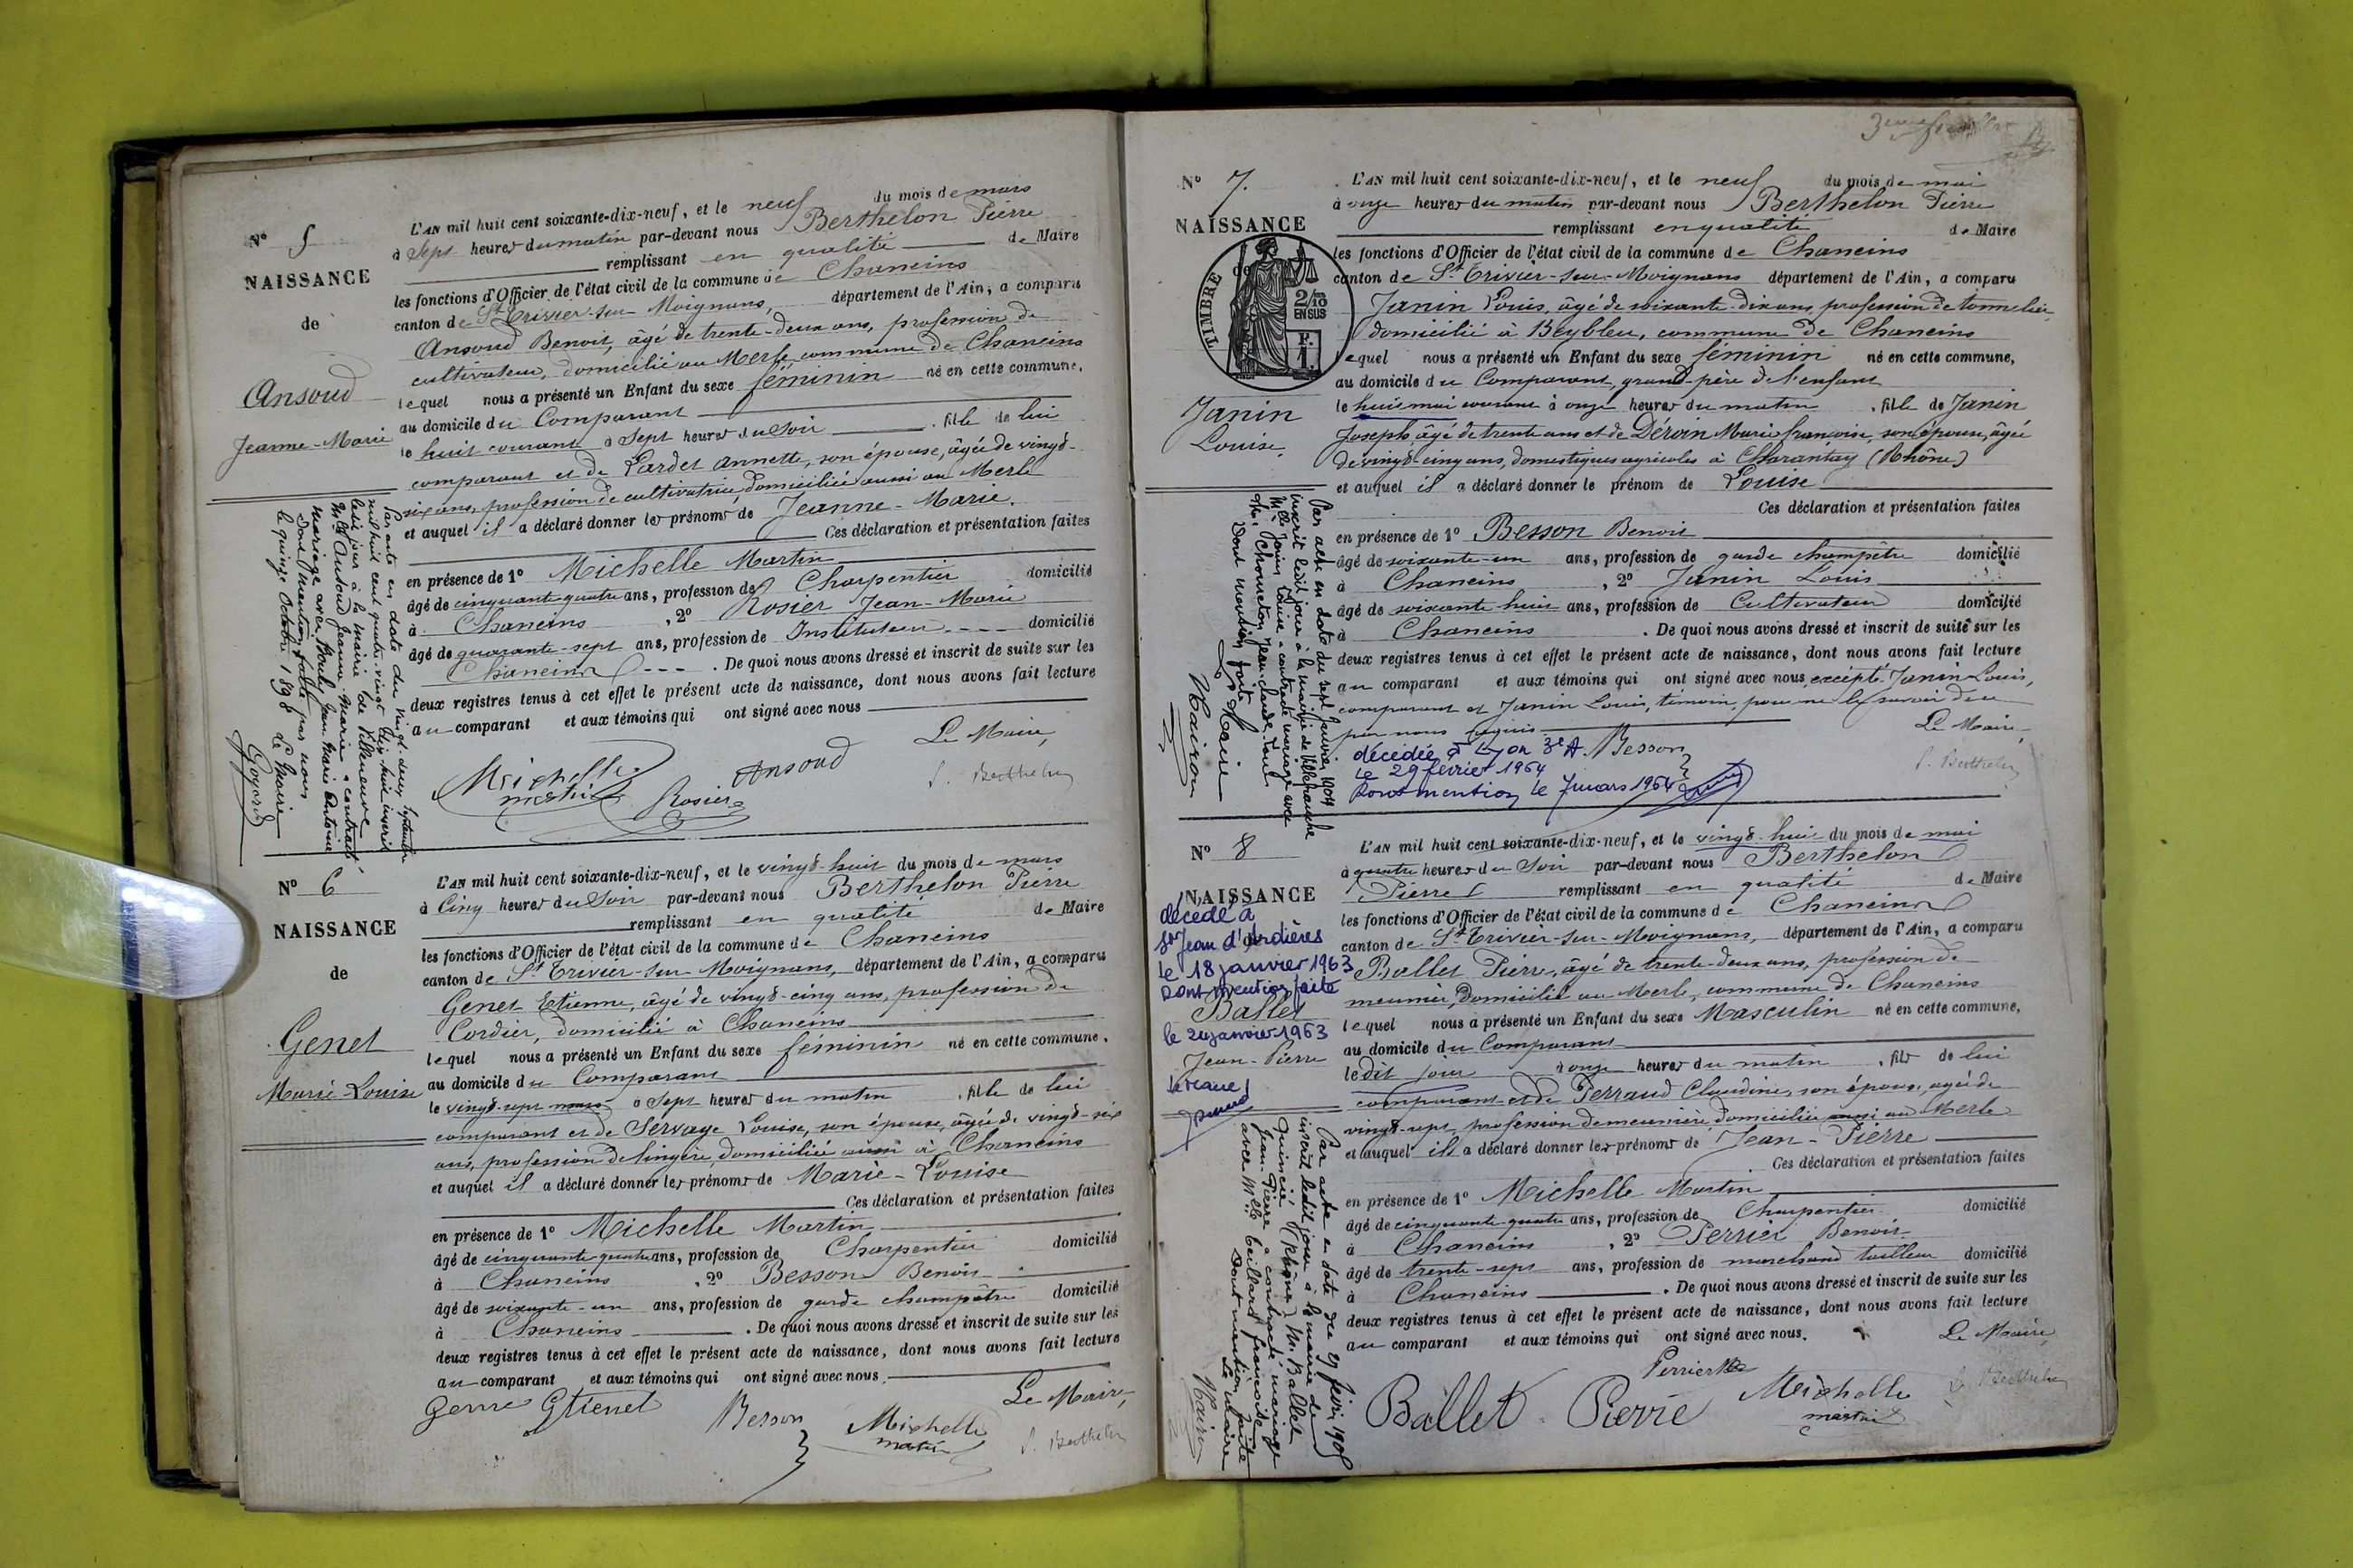 N° 5
NAISSANCE
de
Ansoud
Jeanne-Marie
L'AN mil huit cent soixante-dix-neuf, et le neuf du mois de mars
à Sept heures du matin par-devant nous Berthelon Pierre
remplissant en qualité de Maire
les fonctions d'Officier de l'état civil de la commune de Chaneins
canton de St Trivier-sur-Moignans, département de l'Ain, a comparu
Ansoud Benoit, âgé de trente-deux ans, profession de
cultivateur, domicilié au Merle commune de Chaneins
lequel nous a présenté un Enfant du sexe féminin né en cette commune,
au domicile du Comparant
le huit courant à Sept heures du Soir, fille de lui
comparant et de Lardet Annette, son épouse, âgée de vingt-
six ans, profession de cultivatrice, domiciliée aussi au Merle
et auquel il a déclaré donner les prénoms de Jeanne-Marie.
Ces déclaration et présentation faites
en présence de 1° Michelle Martin
âgé de cinquante-quatre ans, profession de Charpentier domicilié
à Chaneins, 2° Rosier Jean-Marie
âgé de quarante-sept ans, profession de Instituteur domicilié
Chaneins. De quoi nous avons dressé et inscrit de suite sur les
deux registres tenus à cet effet le présent acte de naissance, dont nous avons fait lecture
au comparant et aux témoins qui ont signé avec nous
Le Maire,
Michelle
martin
Rosier
Ansoud
P. Berthelon
Par acte en date du vingt-deux septembre
mil huit cent quatre-vingt dix-huit inscrit
ledit jour à la mairie de Villeneuve
Mlle Ansoud Jeanne-Marie a contracté
mariage avec Jean Marie Antoine
Dont mention faite par nous
le quinze Octobre 1898
Le Maire
N° 6
NAISSANCE
de
Genet
Marie-Louise
L'AN mil huit cent soixante-dix-neuf, et le vingt-huit du mois de mars
à Cinq heures du Soir par-devant nous Berthelon Pierre
remplissant en qualité de Maire
les fonctions d'Officier de l'état civil de la commune de Chaneins
canton de St Trivier-sur-Moignans, département de l'Ain, a comparu
Genet Etienne, âgé de vingt-cinq ans, profession de
Cordier, domicilié à Chaneins
lequel nous a présenté un Enfant du sexe féminin né en cette commune,
au domicile du Comparant
le vingt-sept mars à Sept heures du matin, fille de lui
comparant et de Servage Louise, son épouse, âgée de vingt-six
ans, profession de lingère, domiciliée aussi à Chaneins
et auquel il a déclaré donner les prénoms de Marie-Louise
Ces déclaration et présentation faites
en présence de 1° Michelle Martin
âgé de cinquante-quatre ans, profession de Charpentier domicilié
à Chaneins, 2° Besson Benoit
âgé de soixante-un ans, profession de garde champêtre domicilié
à Chaneins. De quoi nous avons dressé et inscrit de suite sur les
deux registres tenus à cet effet le présent acte de naissance, dont nous avons fait lecture
au comparant et aux témoins qui ont signé avec nous.
Le Maire,
Besson
Michelle
martin
P. Berthelon
N° 7.
NAISSANCE
de
TIMBRE
2/10 EN SUS
Janin
Louise.
L'AN mil huit cent soixante-dix-neuf, et le neuf du mois de mai
à onze heures du matin par-devant nous Berthelon Pierre
remplissant en qualité de Maire
les fonctions d'Officier de l'état civil de la commune de Chaneins
canton de St Trivier-sur-Moignans département de l'Ain, a comparu
Janin Louis, âgé de soixante-dix ans, profession de tonnelier,
domicilié à Beybleu, commune de Chaneins
lequel nous a présenté un Enfant du sexe féminin né en cette commune,
au domicile du Comparant, grand-père de l'enfant
le huit mai courant à onze heures du matin, fille de Janin
Joseph, âgé de trente ans et de Déroin Marie françoise, son épouse, âgée
de vingt-cinq ans, domestiques agricoles à Charantay (Rhône)
et auquel il a déclaré donner le prénom de Louise
Ces déclaration et présentation faites
en présence de 1° Besson Benoit
âgé de soixante-un ans, profession de garde champêtre domicilié
à Chaneins, 2° Janin Louis
âgé de soixante-huit ans, profession de Cultivateur domicilié
à Chaneins. De quoi nous avons dressé et inscrit de suite sur les
deux registres tenus à cet effet le présent acte de naissance, dont nous avons fait lecture
au comparant et aux témoins qui ont signé avec nous, excepté Janin Louis,
comparant et Janin Louis, témoin, pour ne le savoir de ce
par nous requis
Le Maire,
décédée à Lyon 3e A.
Le 29 février 1964
Dont mention le 7 mars 1964
Besson
P. Berthelon
Par acte en date du sept Janvier 1904
inscrit ledit jour à la mairie de Villefranche
Mlle Janin Louise a contracté mariage avec
Mr Jean-Claude
Dont mention faite
Le Maire
N° 8
NAISSANCE
décédé à
St Jean d'Ardières
le 18 janvier 1963
Dont mention faite
Ballet
le 24 janvier 1963
Jean-Pierre
Le Maire
L'AN mil huit cent soixante-dix-neuf, et le vingt-huit du mois de mai
à quatre heures du Soir par-devant nous Berthelon
Pierre remplissant en qualité de Maire
les fonctions d'Officier de l'état civil de la commune de Chaneins
canton de St Trivier-sur-Moignans, département de l'Ain, a comparu
Ballet Pierre, âgé de trente-deux ans, profession de
meunier, domicilié au Merle, commune de Chaneins
lequel nous a présenté un Enfant du sexe Masculin né en cette commune,
au domicile du Comparant
le dit jour à onze heures du matin, fils de lui
comparant et de Perraud Claudine, son épouse, âgée de
vingt-sept, profession de meunière, domiciliée aussi au Merle
et auquel il a déclaré donner les prénoms de Jean-Pierre
Ces déclaration et présentation faites
en présence de 1° Michelle Martin
âgé de cinquante-quatre ans, profession de Charpentier domicilié
à Chaneins, 2° Perrier Benoit
âgé de trente-sept ans, profession de marchand tailleur domicilié
à Chaneins. De quoi nous avons dressé et inscrit de suite sur les
deux registres tenus à cet effet le présent acte de naissance, dont nous avons fait lecture
au comparant et aux témoins qui ont signé avec nous.
Le Maire,
Ballet Pierre
Perrier
Michelle
martin
P. Berthelon
Par acte en date du 27 1905
inscrit ledit jour à la mairie de
Quincié (Rhône) Mr Ballet
Jean-Pierre a contracté mariage
avec Mlle françoise
Dont mention faite
Le Maire